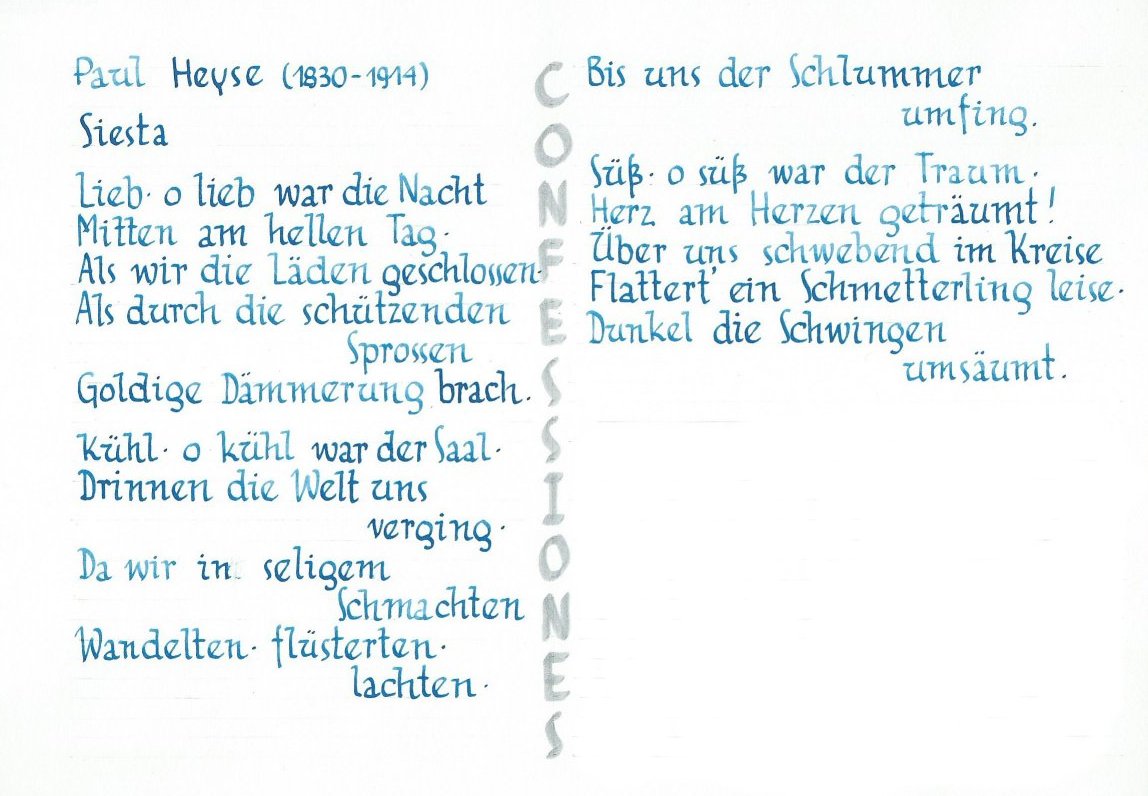 Paul Heyse (1830-1914)
Siesta
Lieb· o lieb war die Nacht
Mitten am hellen Tag·
Als wir die Läden geschlossen·
Als durch die schützenden
Sprossen
Goldige Dämmerung brach.
Kühl· o kühl war der Saal·
Drinnen die Welt uns
verging·
Da wir in seligem
Schmachten
Wandelten· flüsterten·
lachten·
CONFESSIONES
Bis uns der Schlummer
umfing.
Süß· o süß war der Traum·
Herz am Herzen geträumt!
Über uns schwebend im Kreise
Flattert' ein Schmetterling leise·
Dunkel die Schwingen
umsäumt.